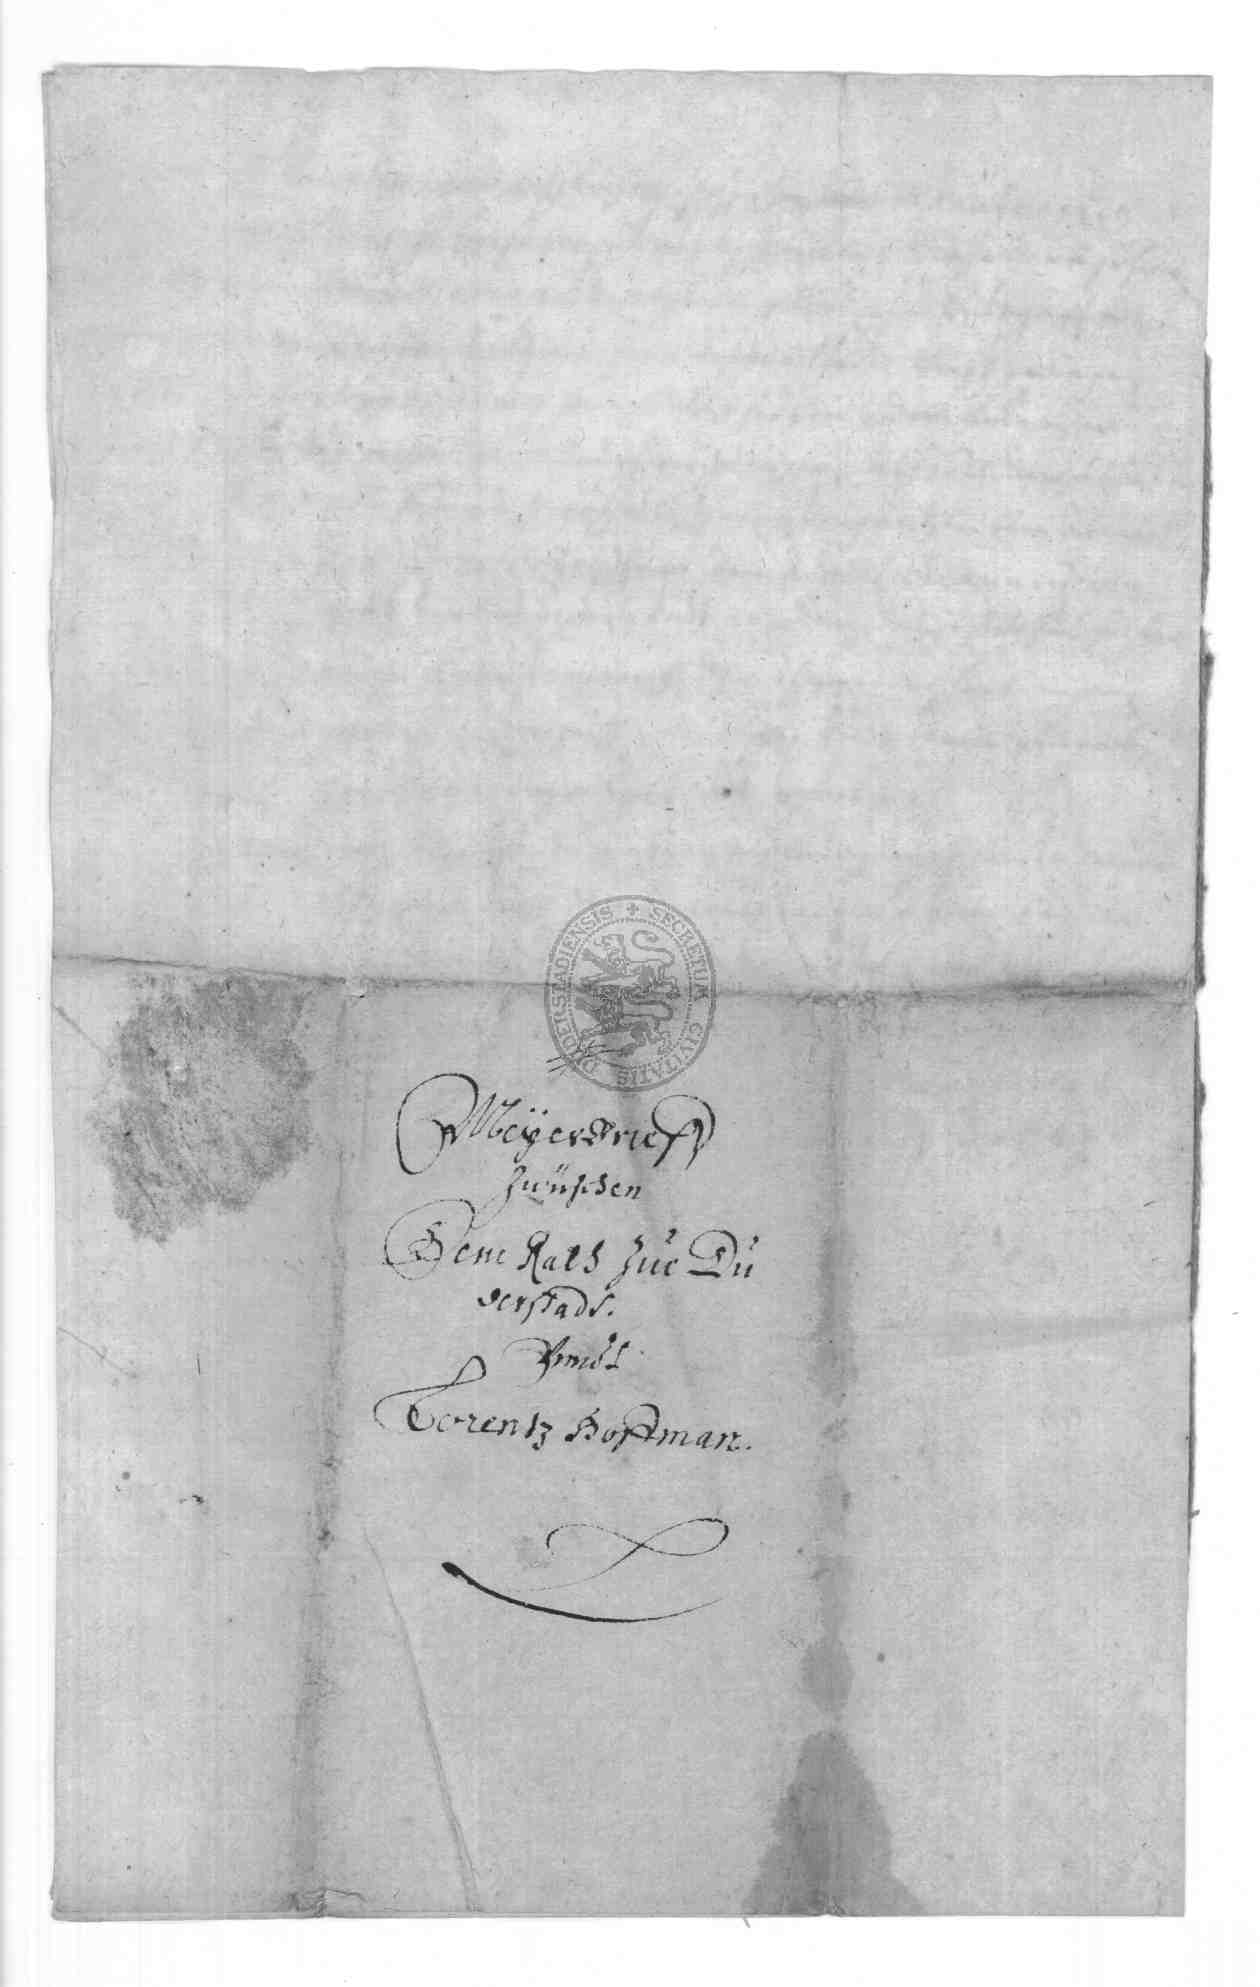 SECRETUM CIVITATIS DUDERSTADIENSIS
Meÿerbrieff
Zwüschen
Dem Rath Zue Du
derstadt.
Vnndt
Lorentz Hoffman.